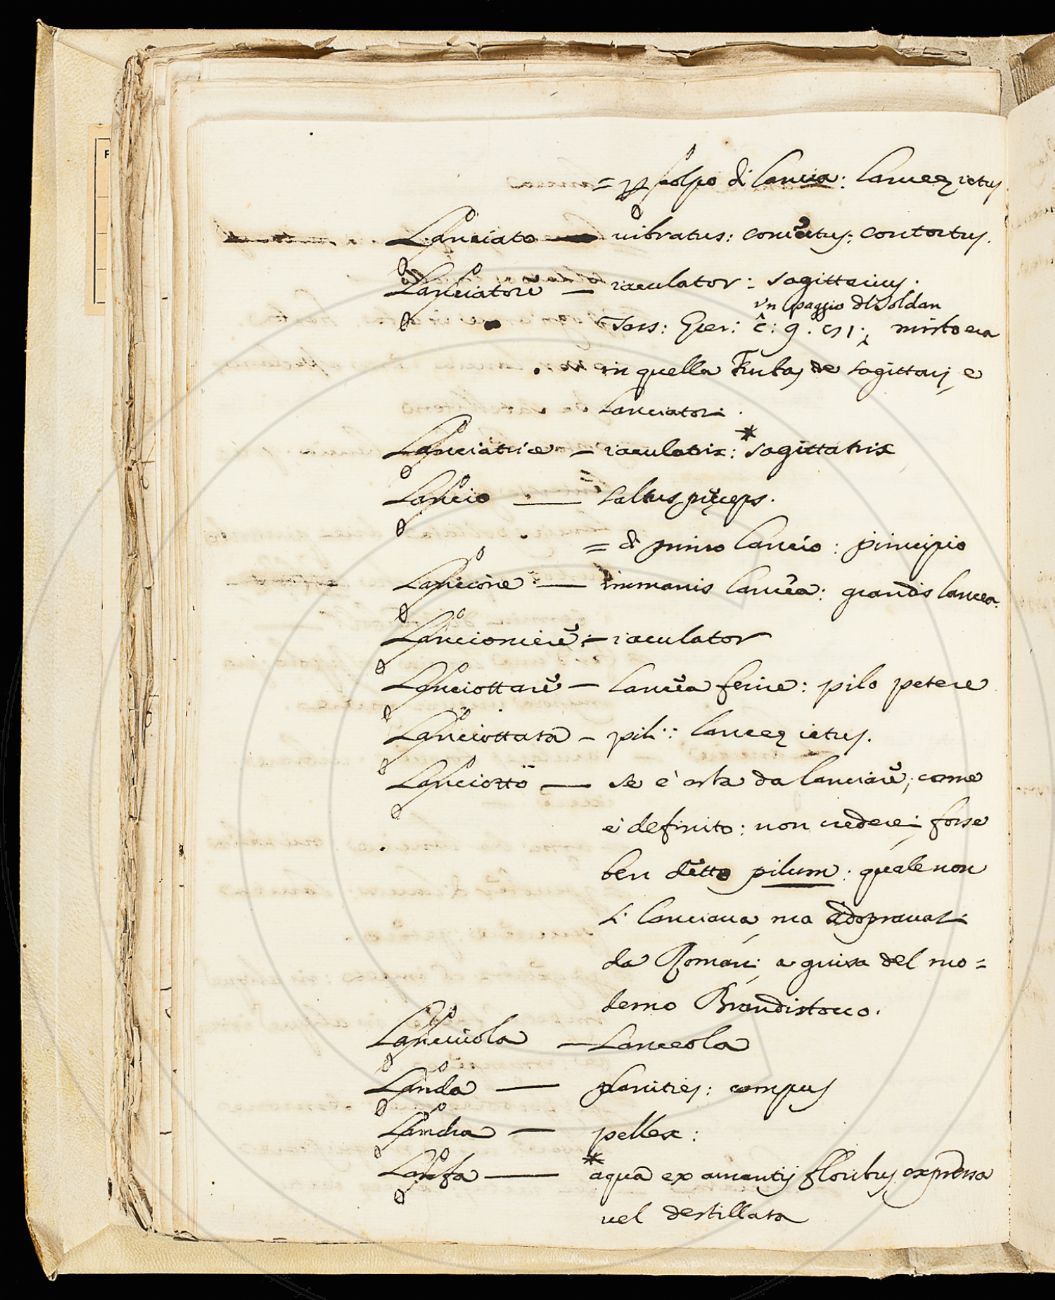 = p colpo di lancia: lanceę ictus
Lanciato — vibratus: coniectus: contortus.
Lanciatore — iaculator: sagittarius.
un paggio del Soldan
Tass: Ger: c: 9. misto era
in quella Turba de sagittarij, e
Lanciatori.
Lanciatrice — iaculatrix: * sagittatrix
Lancio — saltus pręceps.
= di primo lancio: principio
Lancione — immanis lancea: grandis lancea.
Lancioniere — iaculator
Lanciottare — lancea ferire: pilo petere
Lanciottata — pili: lanceę ictus.
Lanciotto — se è asta da lanciare, come
è definito: non crederei forse
ben detto pilum: quale non
si lanciava, ma adopravasi
da Romani, a guisa del mo=
derno Brandistocco.
Lanciuola — Lanceola
Landa — planities: campus
Landra — pellex:
Lanfa — * aqua ex amentis floribus expressa
vel destillata